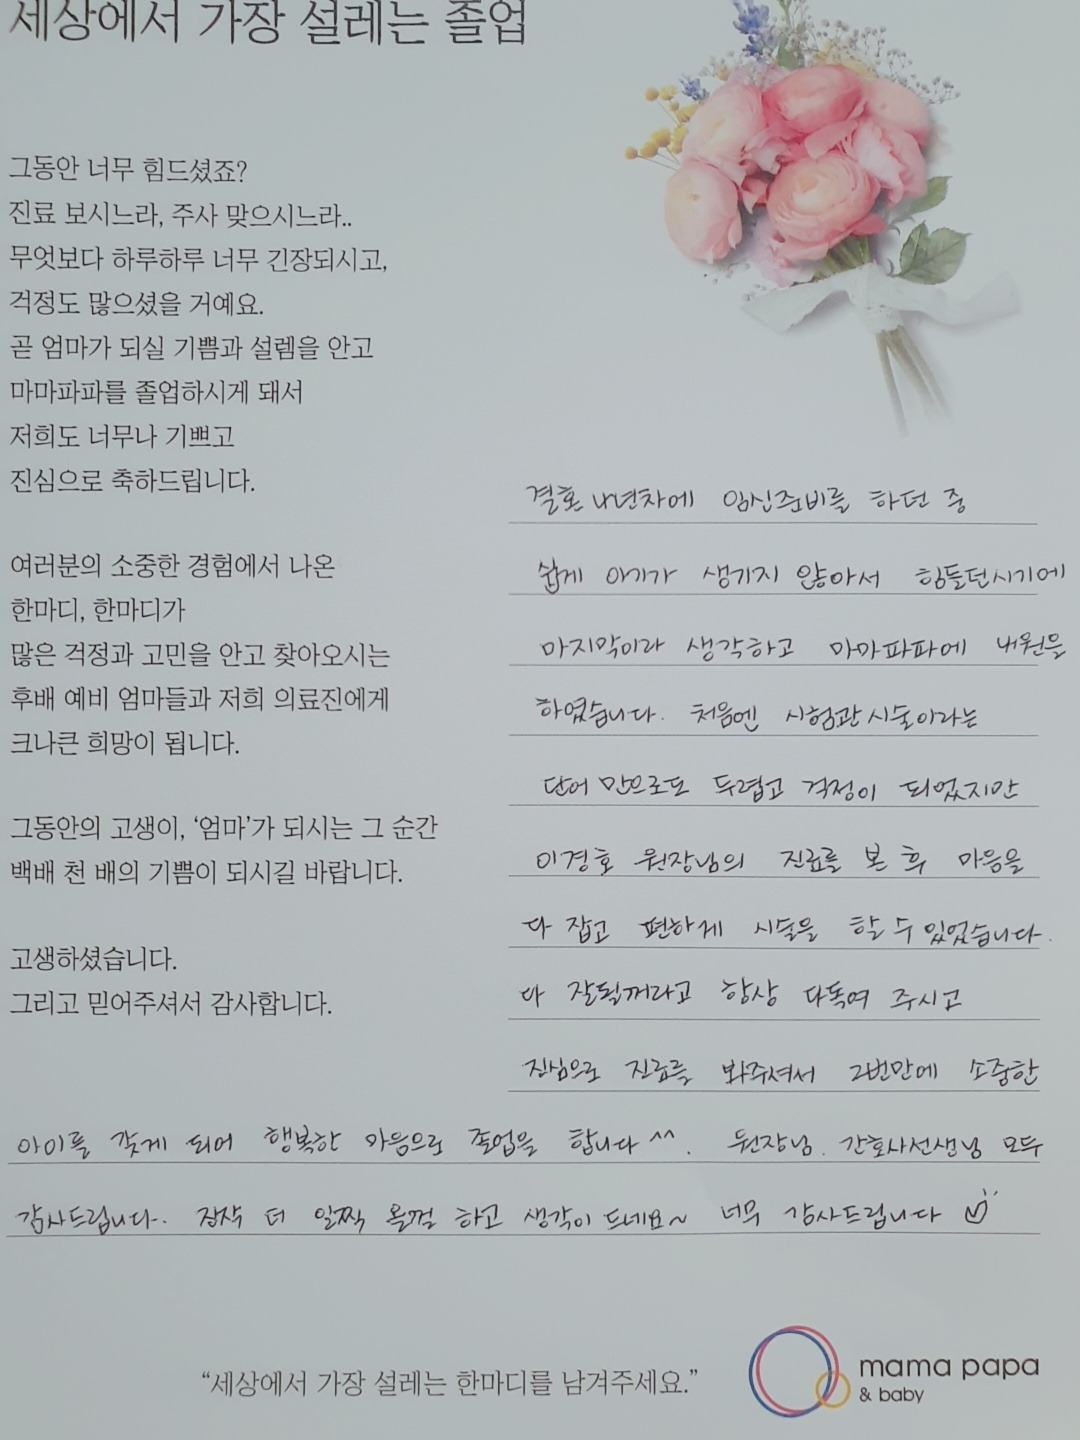 세상에서 가장 설레는 졸업
그동안 너무 힘드셨죠?
진료 보시느라, 주사 맞으시느라..
무엇보다 하루하루 너무 긴장되시고,
걱정도 많으셨을 거예요.
곧 엄마가 되실 기쁨과 설렘을 안고
마마파파를 졸업하시게 돼서
저희도 너무나 기쁘고
진심으로 축하드립니다.
여러분의 소중한 경험에서 나온
한마디, 한마디가
많은 걱정과 고민을 안고 찾아오시는
후배 예비 엄마들과 저희 의료진에게
크나큰 희망이 됩니다.
그동안의 고생이, ‘엄마’가 되시는 그 순간
백배 천 배의 기쁨이 되시길 바랍니다.
고생하셨습니다.
그리고 믿어주셔서 감사합니다.
결혼 4년차에 임신준비를 하던 중
쉽게 아기가 생기지 않아서 힘들던시기에
마지막이라 생각하고 마마파파에 내원을
하였습니다. 처음엔 시험관시술이라는
단어 만으로도 두렵고 걱정이 되었지만
이경호 원장님의 진료를 본 후 마음을
다 잡고 편하게 시술을 할 수 있었습니다.
다 잘될꺼라고 항상 다독여 주시고
진심으로 진료를 봐주셔서 2번만에 소중한
아이를 갖게 되어 행복한 마음으로 졸업을 합니다 ^^. 원장님. 간호사선생님 모두
감사드립니다. 진작 더 일찍 올껄 하고 생각이 드네요~ 너무 감사드립니다
“세상에서 가장 설레는 한마디를 남겨주세요.”
mama papa
& baby